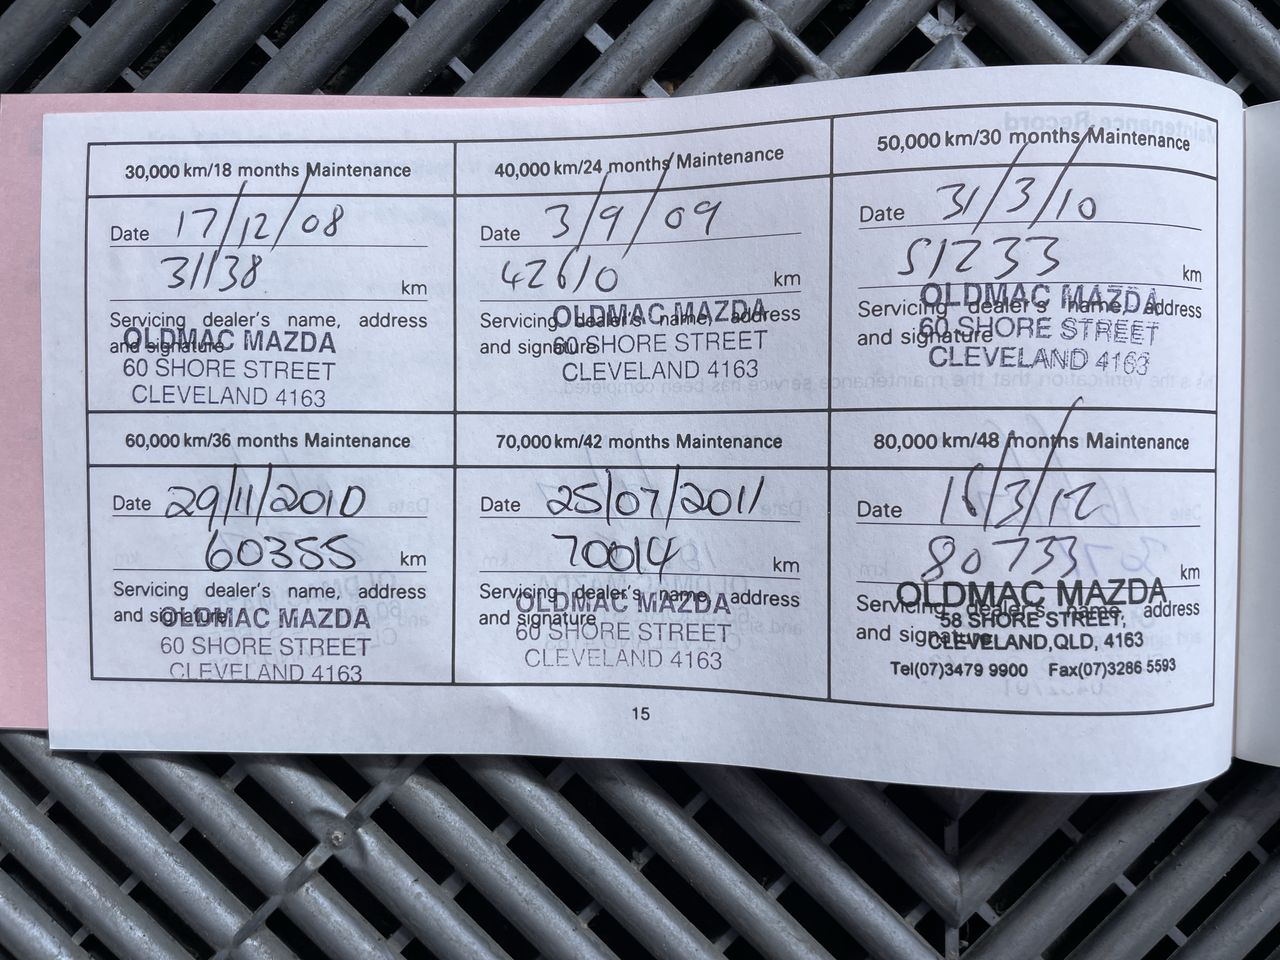 30,000 km/18 months Maintenance
Date 17/12/08
31138 km
Servicing dealer's name, address
and signature
OLDMAC MAZDA
60 SHORE STREET
CLEVELAND 4163
40,000 km/24 months Maintenance
Date 3/9/09
42610 km
Servicing dealer's name, address
and signature
OLDMAC MAZDA
60 SHORE STREET
CLEVELAND 4163
50,000 km/30 months Maintenance
Date 31/3/10
51233 km
Servicing dealer's name, address
and signature
OLDMAC MAZDA
60 SHORE STREET
CLEVELAND 4163
60,000 km/36 months Maintenance
Date 29/11/2010
60355 km
Servicing dealer's name, address
and signature
OLDMAC MAZDA
60 SHORE STREET
CLEVELAND 4163
70,000 km/42 months Maintenance
Date 25/07/2011
70014 km
Servicing dealer's name, address
and signature
OLDMAC MAZDA
60 SHORE STREET
CLEVELAND 4163
80,000 km/48 months Maintenance
Date 16/3/12
80733 km
Servicing dealer's name, address
and signature
OLDMAC MAZDA
58 SHORE STREET,
CLEVELAND,QLD, 4163
Tel(07)3479 9900 Fax(07)3286 5593
15